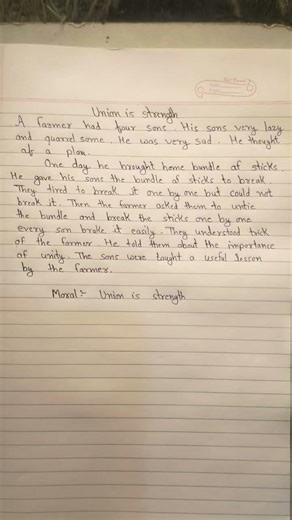 Union is strength
A farmer had four sons. His sons very lazy
and quarrel some. He was very sad. He thought
of a plan.
One day he brought home bundle of sticks
He gave his sons the bundle of sticks to break
They tired to break it one by one but could not
break it. Then the farmer asked them to untie
the bundle and break the sticks one by one
every son broke it easily. They understood trick
of the farmer. He told them about the importance
of unity. The sons were taught a useful lesson
by the farmer.
Moral:- Union is strength